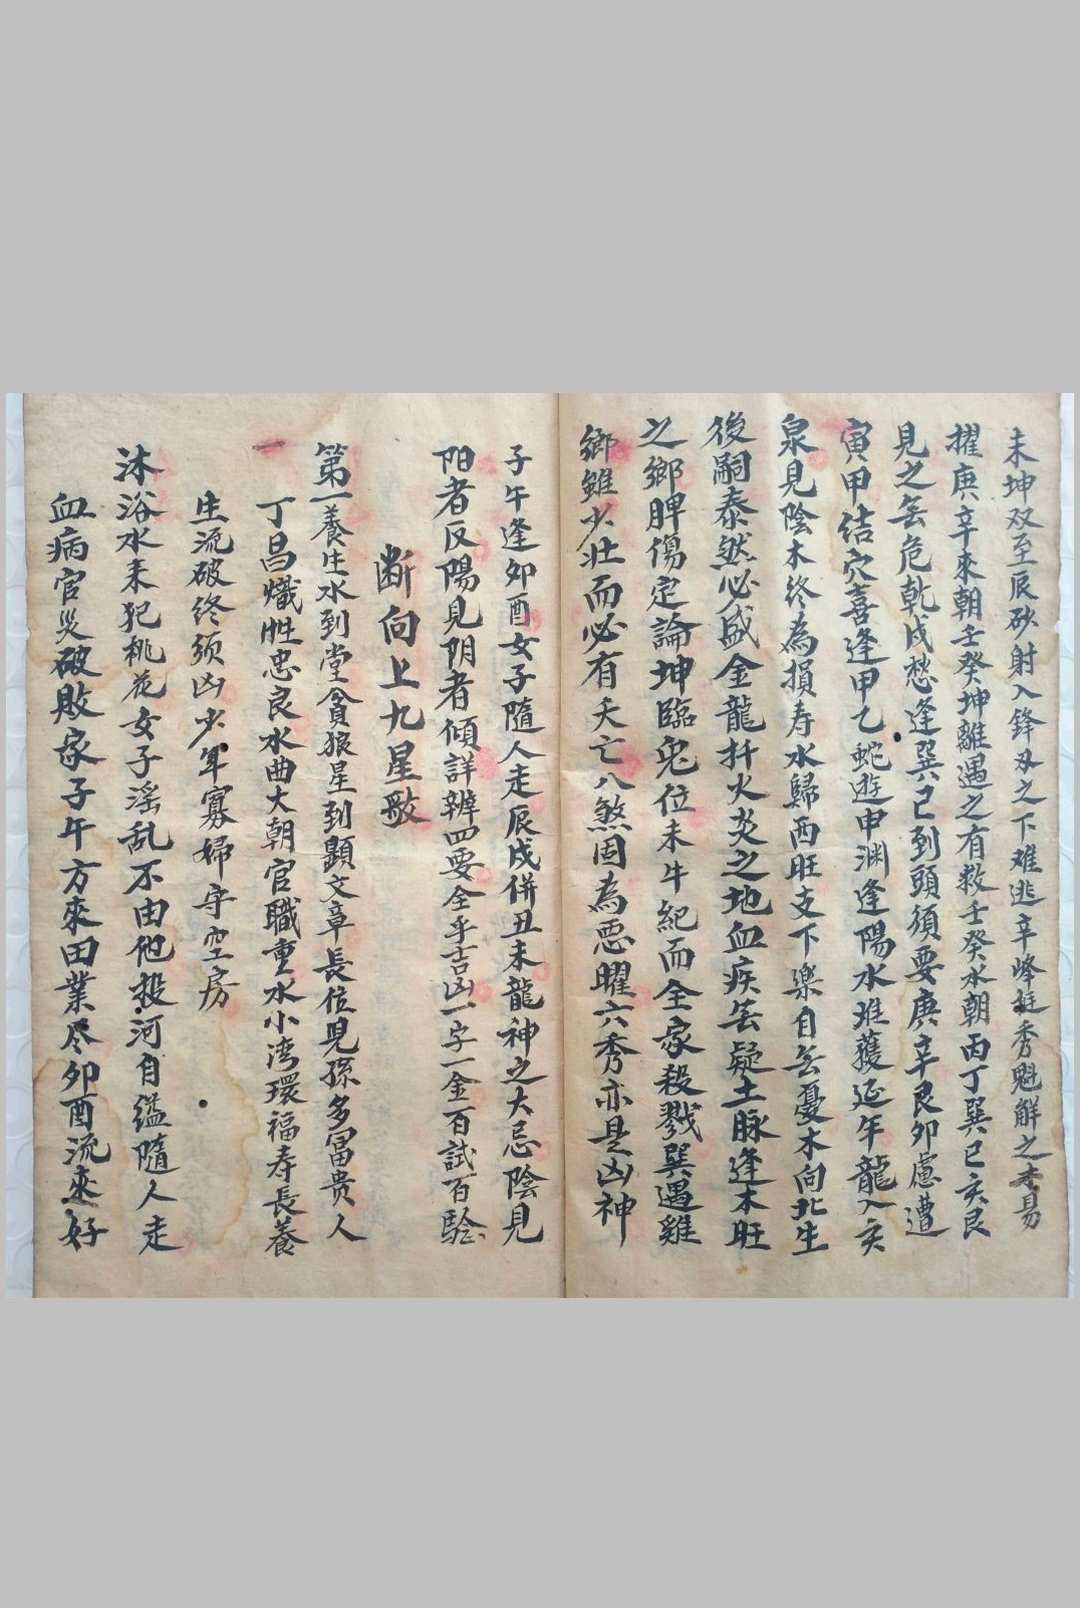 未坤双至辰砂射入鋒刃之下难逃辛峰挺秀魁解之未易
擢庚辛來朝壬癸坤離遇之有救壬癸水朝丙丁巽巳亥艮
見之無危乾戌愁逢巽巳到頭須要庚辛艮卯慮遭
寅甲結穴喜逢甲乙蛇遊申渊逢陽水难獲延年龍入亥
泉見陰木終為損寿水歸西旺支下樂自無憂木向北生
後嗣泰然必盛金龍扦火炎之地血疾無疑土脉逢木旺
之鄉脾傷定論坤臨鬼位未牛紀而全家殺戮巽遇雞
鄉雖少壮而必有夭亡八煞固為惡曜六秀亦是凶神
子午逢卯酉女子隨人走辰戌併丑未龍神之大忌陰見
阳者反陽見阴者傾詳辨四要全乎吉凶一字一金百試百驗
断向上九星歌
第一養生水到堂貪狼星到顕文章長位児孫多冨贵人
丁昌熾性忠良水曲大朝官職重水小湾環福寿長養
生流破终须凶少年寡婦守空房
沐浴水来犯桃花女子滛乱不由他投河自缢隨人走
血病官災破敗家子午方來田業尽卯酉流來好